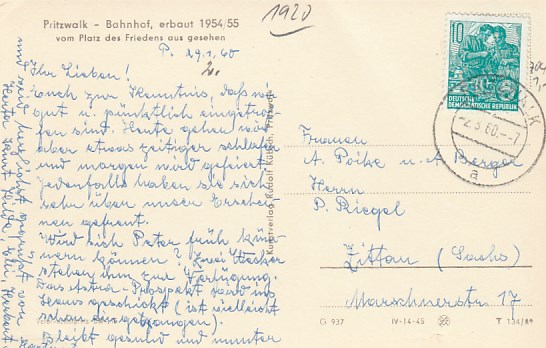 Pritzwalk - Bahnhof, erbaut 1954/55
vom Platz des Friedens aus gesehen
1920
P. 29.1.60
2.
Ihr Lieben!
Euch zur Kenntnis, daß wir
gut u. pünktlich eingetrof-
fen sind. Heute gehen wir
aber etwas zeitiger schlafen
und morgen wird gefeiert.
Jedenfalls haben sie sich
sehr über unser Erschei-
nen gefreut.
Wird sich Peter früh küm-
mern können? Zwei Wecker
stehen ihm zur Verfügung.
Das Astra-Prospekt wird ins
Haus geschickt (ist vielleicht
schon eingetroffen).
Bleibt gesund und munter
und seid herzlichst gegrüßt von
Kunstverlag Rudolf
10
DEUTSCHE
DEMOKRATISCHE REPUBLIK
-2.3.60.--7
a
Frauen
A. Poike u. A. Berger
Herrn
P. Riegel
Zittau (Sachs)
Marschnerstr. 17
G 937
IV-14-45